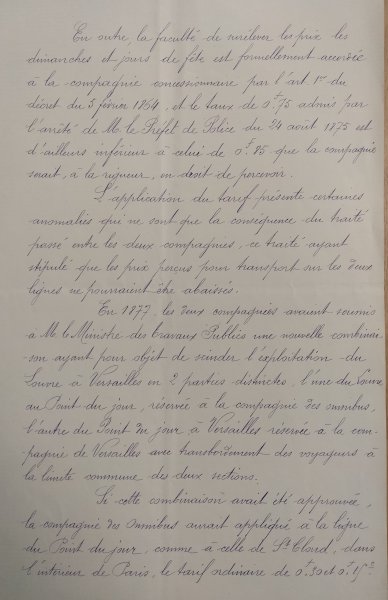 En outre, la faculté de surélever les prix les
dimanches et jours de fête est formellement accordée
à la compagnie concessionnaire par l'art 1er du
décret du 3 février 1854, et le taux de 0f.75 admis par
l'arrêté de M. le Préfet de Police du 24 août 1875 est
d'ailleurs inférieur à celui de 0f.85 que la compagnie
serait, à la rigueur, en droit de percevoir.
L'application du tarif présente certaines
anomalies qui ne sont que la conséquence du traité
passé entre les deux compagnies, ce traité ayant
stipulé que les prix perçus pour transport sur les deux
lignes ne pourraient être abaissés.
En 1877, les deux compagnies avaient soumis
a M. le Ministre des travaux Publics une nouvelle combinai
-son ayant pour objet de scinder l'exploitation du
Louvre à Versailles en 2 parties distinctes, l'une du Louvre
au Point du jour, réservée à la compagnie des omnibus,
l'autre du Point du jour à Versailles réservée à la com-
-pagnie de Versailles avec transbordement des voyageurs à
la limite commune des deux sections.
Si cette combinaison avait été approuvée,
la compagnie des Omnibus aurait appliqué à la ligne
du Point du jour, comme à celle de St Cloud, dans
l'intérieur de Paris, le tarif ordinaire de 0f.30 et 0f.15c